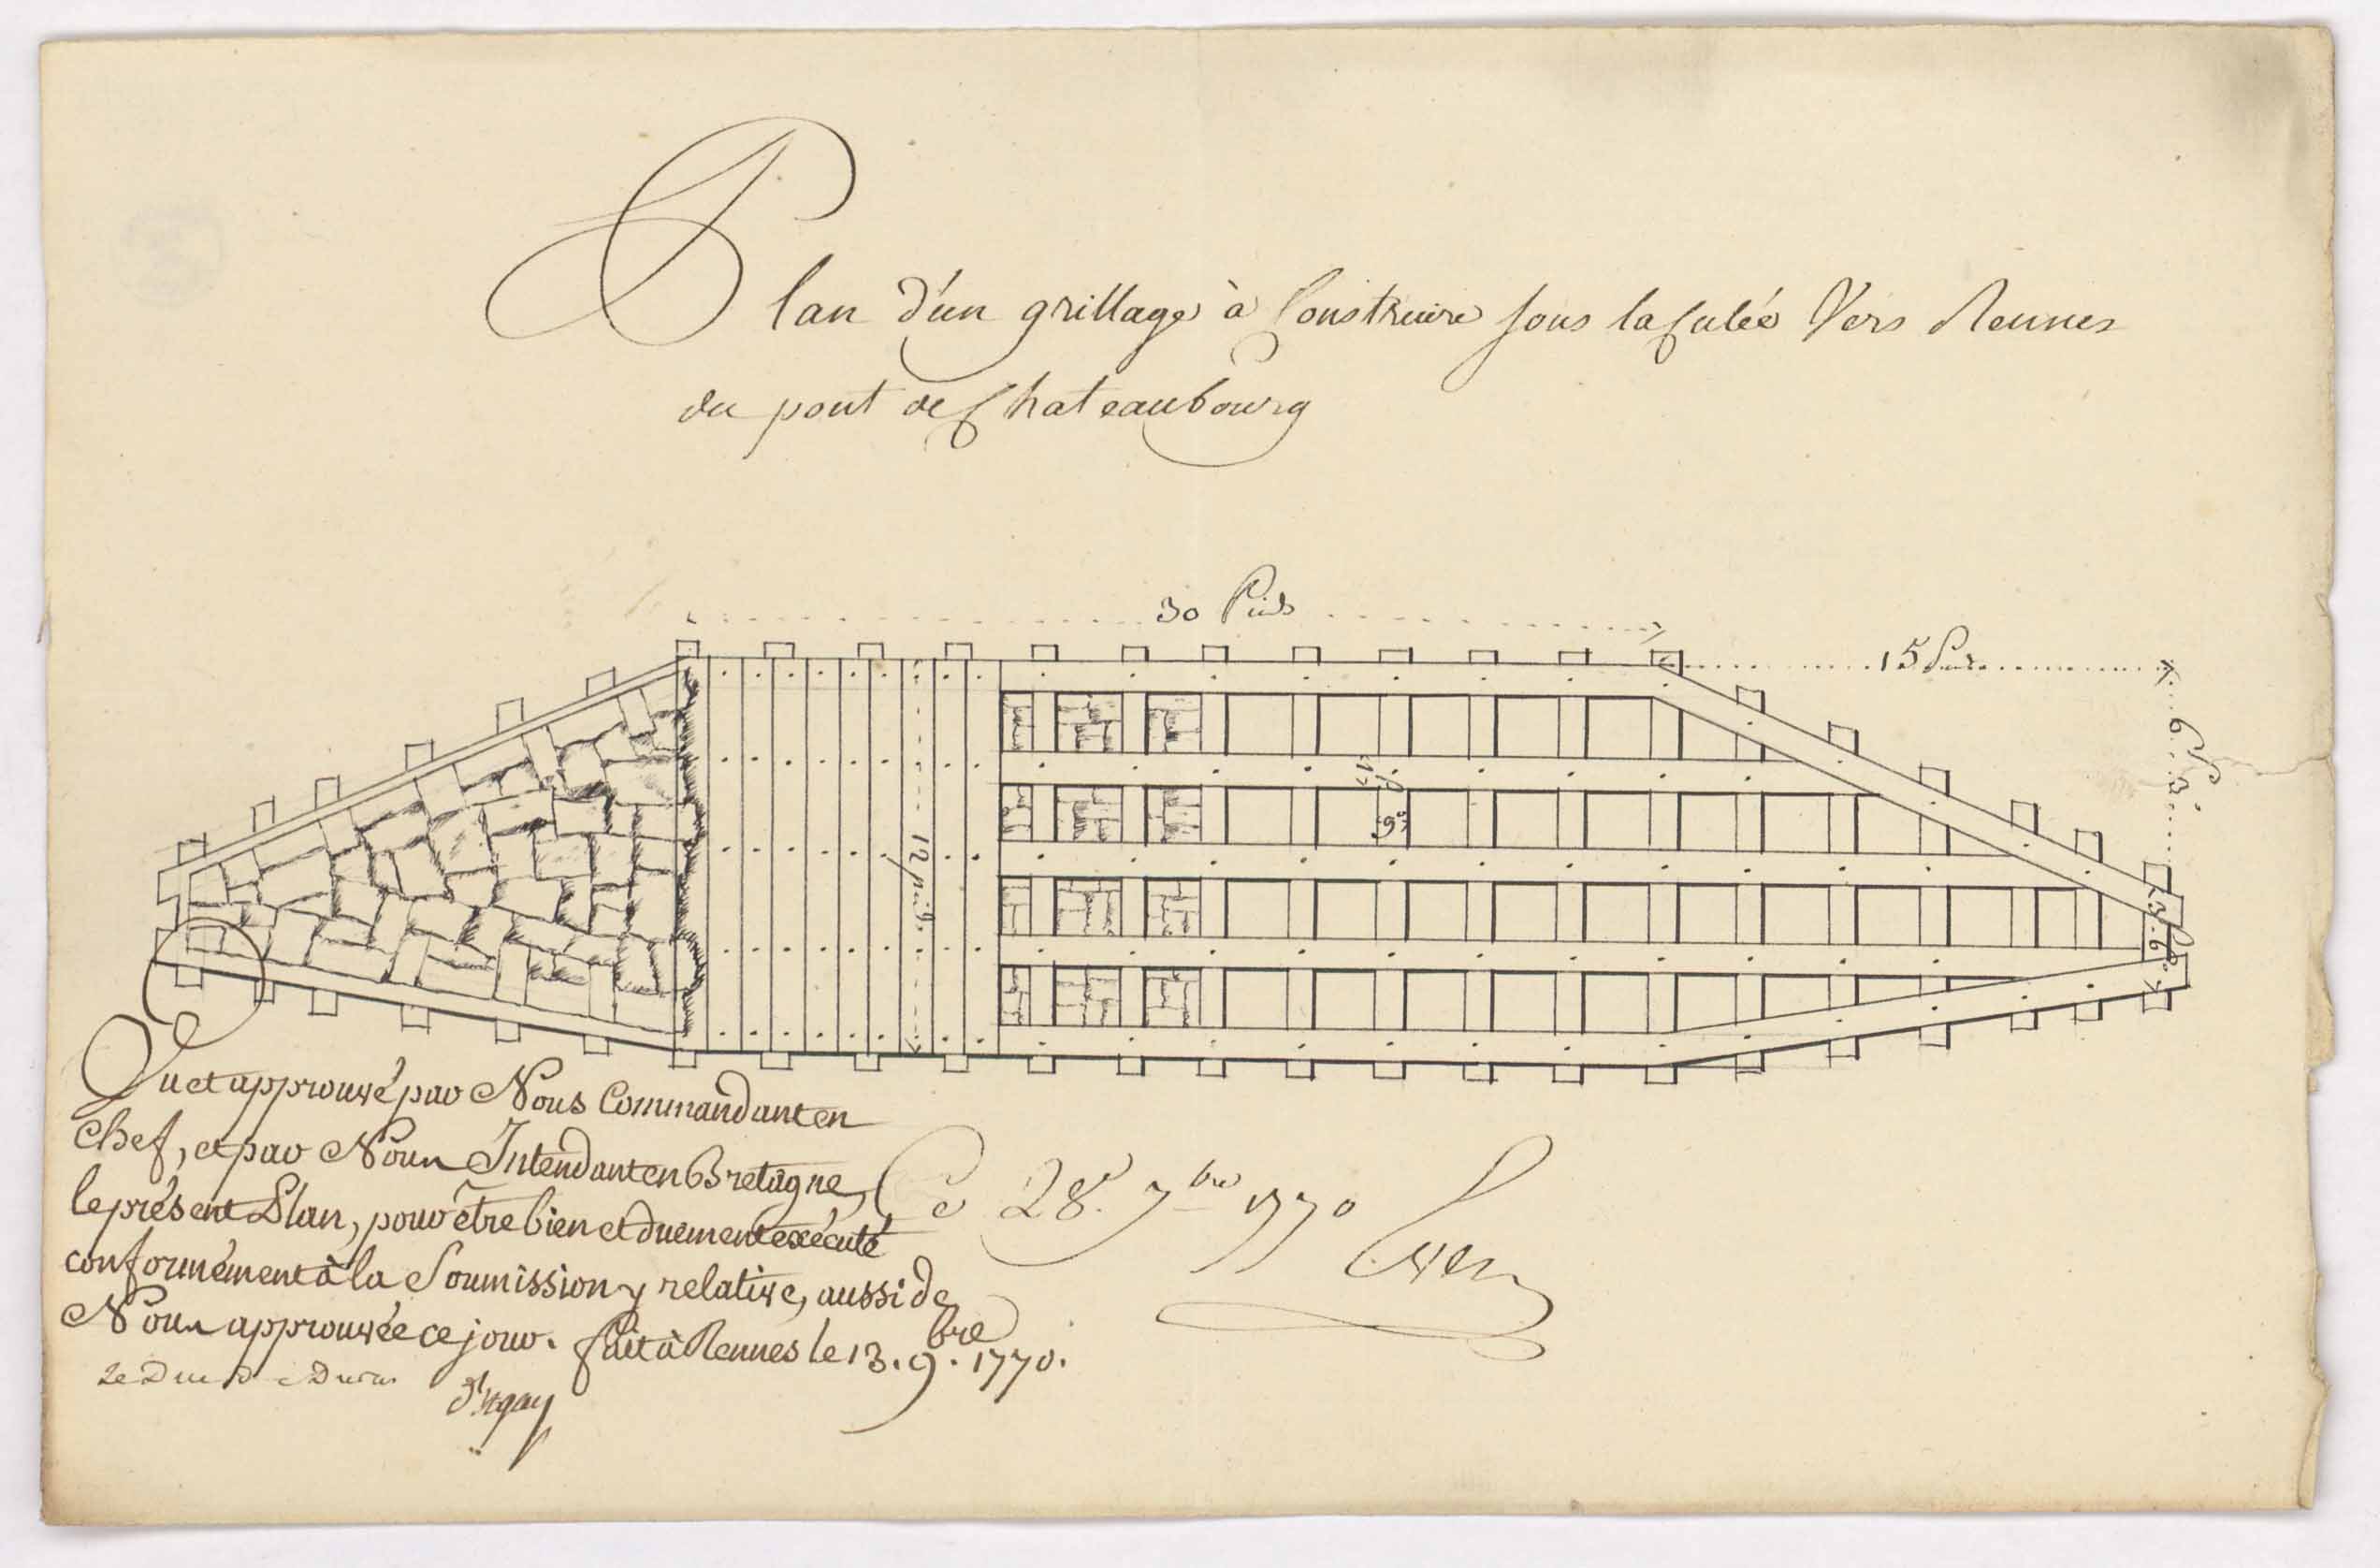 Plan d'un grillage à Construire sous la Culée Vers Rennes
du pont de Chateaubourg
30 Pieds
15 Pieds
6 P. 3.
1
9°
12 pieds
3. 6.
Vu et approuvé par Nous Commandant en
Chef, et par Nous Intendant en Bretagne,
le présent Plan, pour être bien et duement exécuté
conformément à la Soumission y relative, aussi de
Nous approuvée ce jour. fait à Rennes le 13. 9.bre 1770.
Le Duc De Duras
Ce 28. 7bre 1770